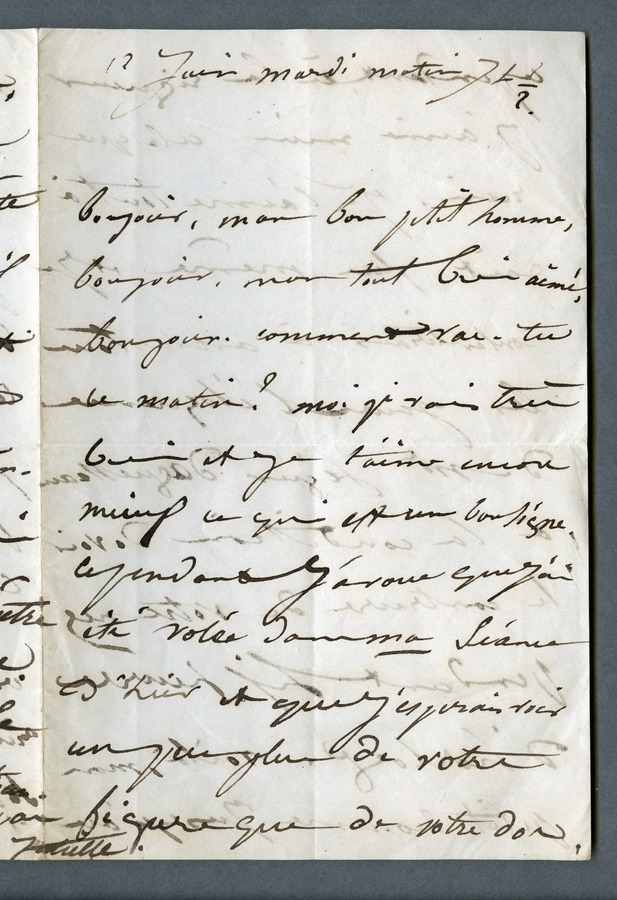 12 Juin mardi matin 7 h ½
Bonjour, mon bon ptit homme,
bonjour, mon tout bien aimé,
bonjour. comment vas-tu
ce matin? moi je vais très
bien et je t'aime encore
mieux ce qui est un bon signe.
cependant j'avoue que j'ai
été volée dans ma séance
d'hier et que j'espérais voir
un peu plus de votre
figure que de votre dos.